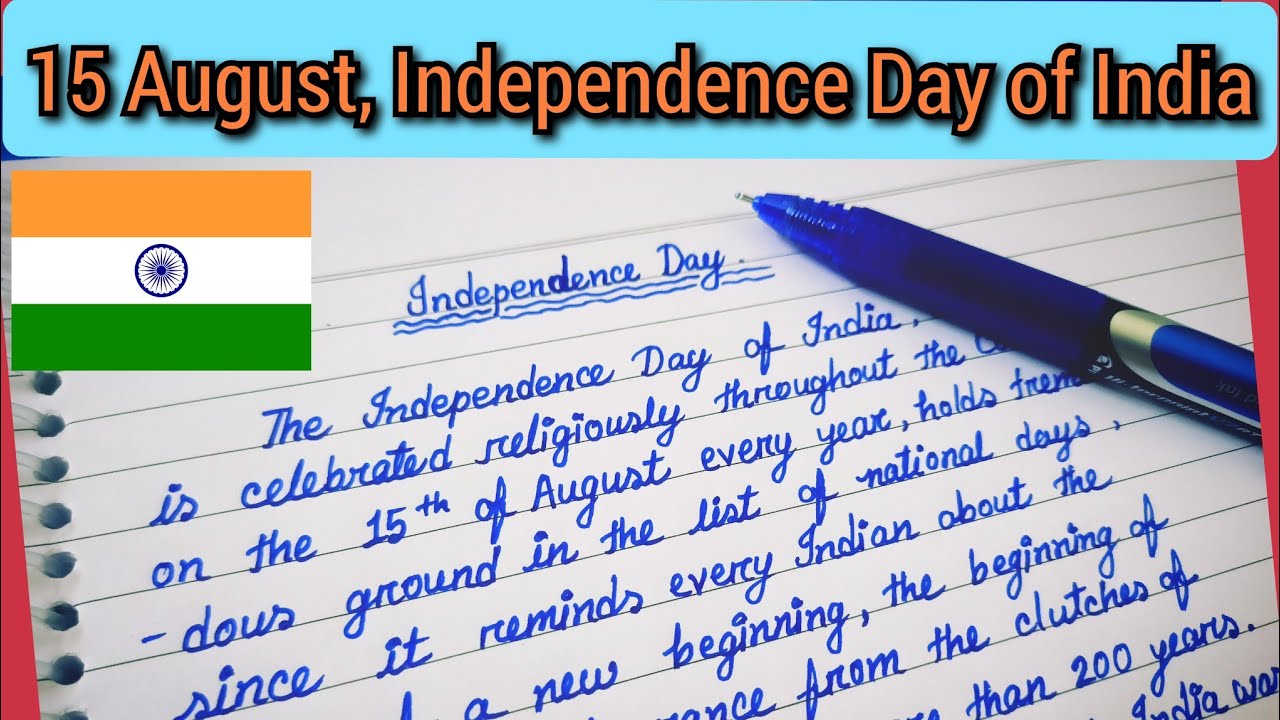 15 August, Independence Day of India
Independence Day.
The Independence Day of India,
is celebrated religiously throughout the
on the 15th of August every year, holds trem
-dous ground in the list of national days,
since it reminds every Indian about the
a new beginning, the beginning of
from the clutches of
than 200 years.
India was